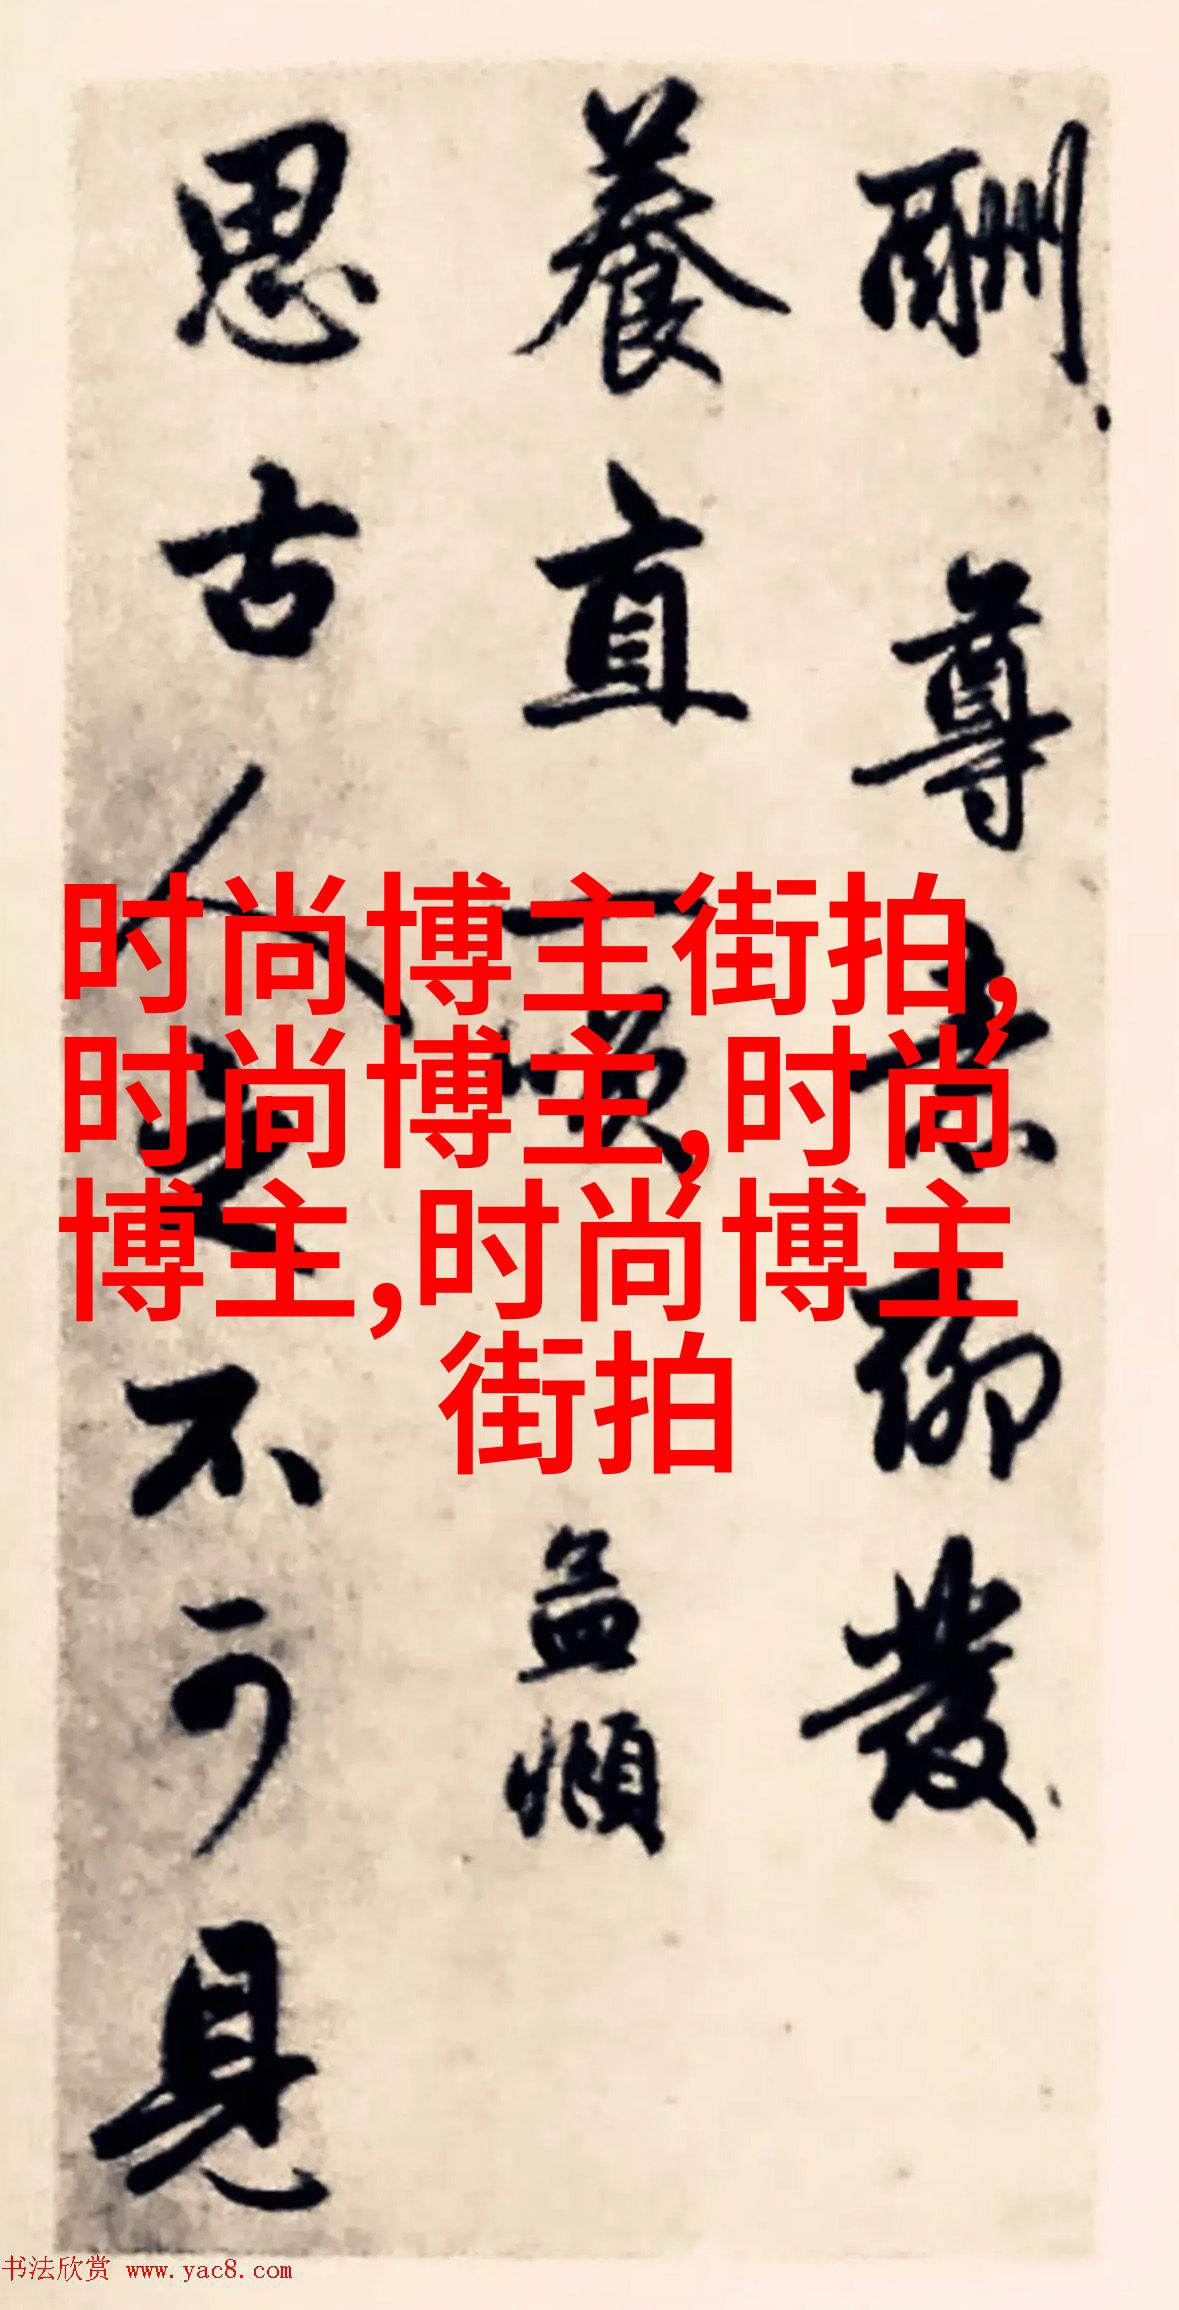 酬尊素聊發
養直一笑孟頫
思古人是不可見
时尚博主街拍,
时尚博主,时尚
博主,时尚博主
街拍
书法欣赏 www.yac8.com